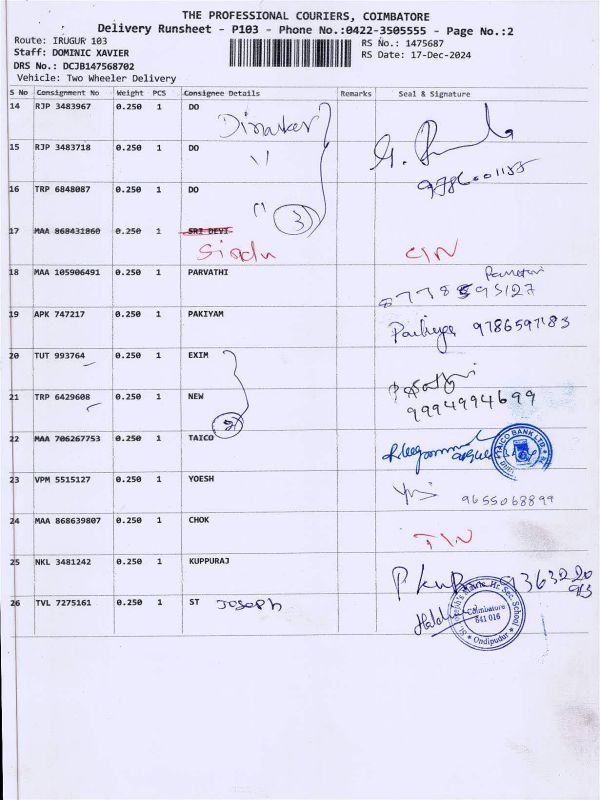 THE PROFESSIONAL COURIERS, COIMBATORE
Delivery Runsheet - P103 - Phone No.:0422-3505555 - Page No.:2
Route: IRUGUR 103
RS No.: 1475687
Staff: DOMINIC XAVIER
RS Date: 17-Dec-2024
DRS No.: DCJB147568702
Vehicle: Two Wheeler Delivery
S No Consignment No Weight PCS Consignee Details Remarks Seal & Signature
14 RJP 3483967 0.250 1 DO
Dinakar
15 RJP 3483718 0.250 1 DO
"
16 TRP 6848087 0.250 1 DO
" 3
17 MAA 868431860 0.250 1 SRI DEVI
18 MAA 105906491 0.250 1 PARVATHI
19 APK 747217 0.250 1 PAKIYAM
9786597183
20 TUT 993764 0.250 1 EXIM
21 TRP 6429608 0.250 1 NEW
9994994699
22 MAA 706267753 0.250 1 TAICO
TAICO BANK LTD.
23 VPM 5515127 0.250 1 YOESH
9655068899
24 MAA 868639807 0.250 1 CHOK
25 NKL 3481242 0.250 1 KUPPURAJ
26 TVL 7275161 0.250 1 ST Joseph
Hr. Sec. School
Coimbatore
641 016
Ondipudur